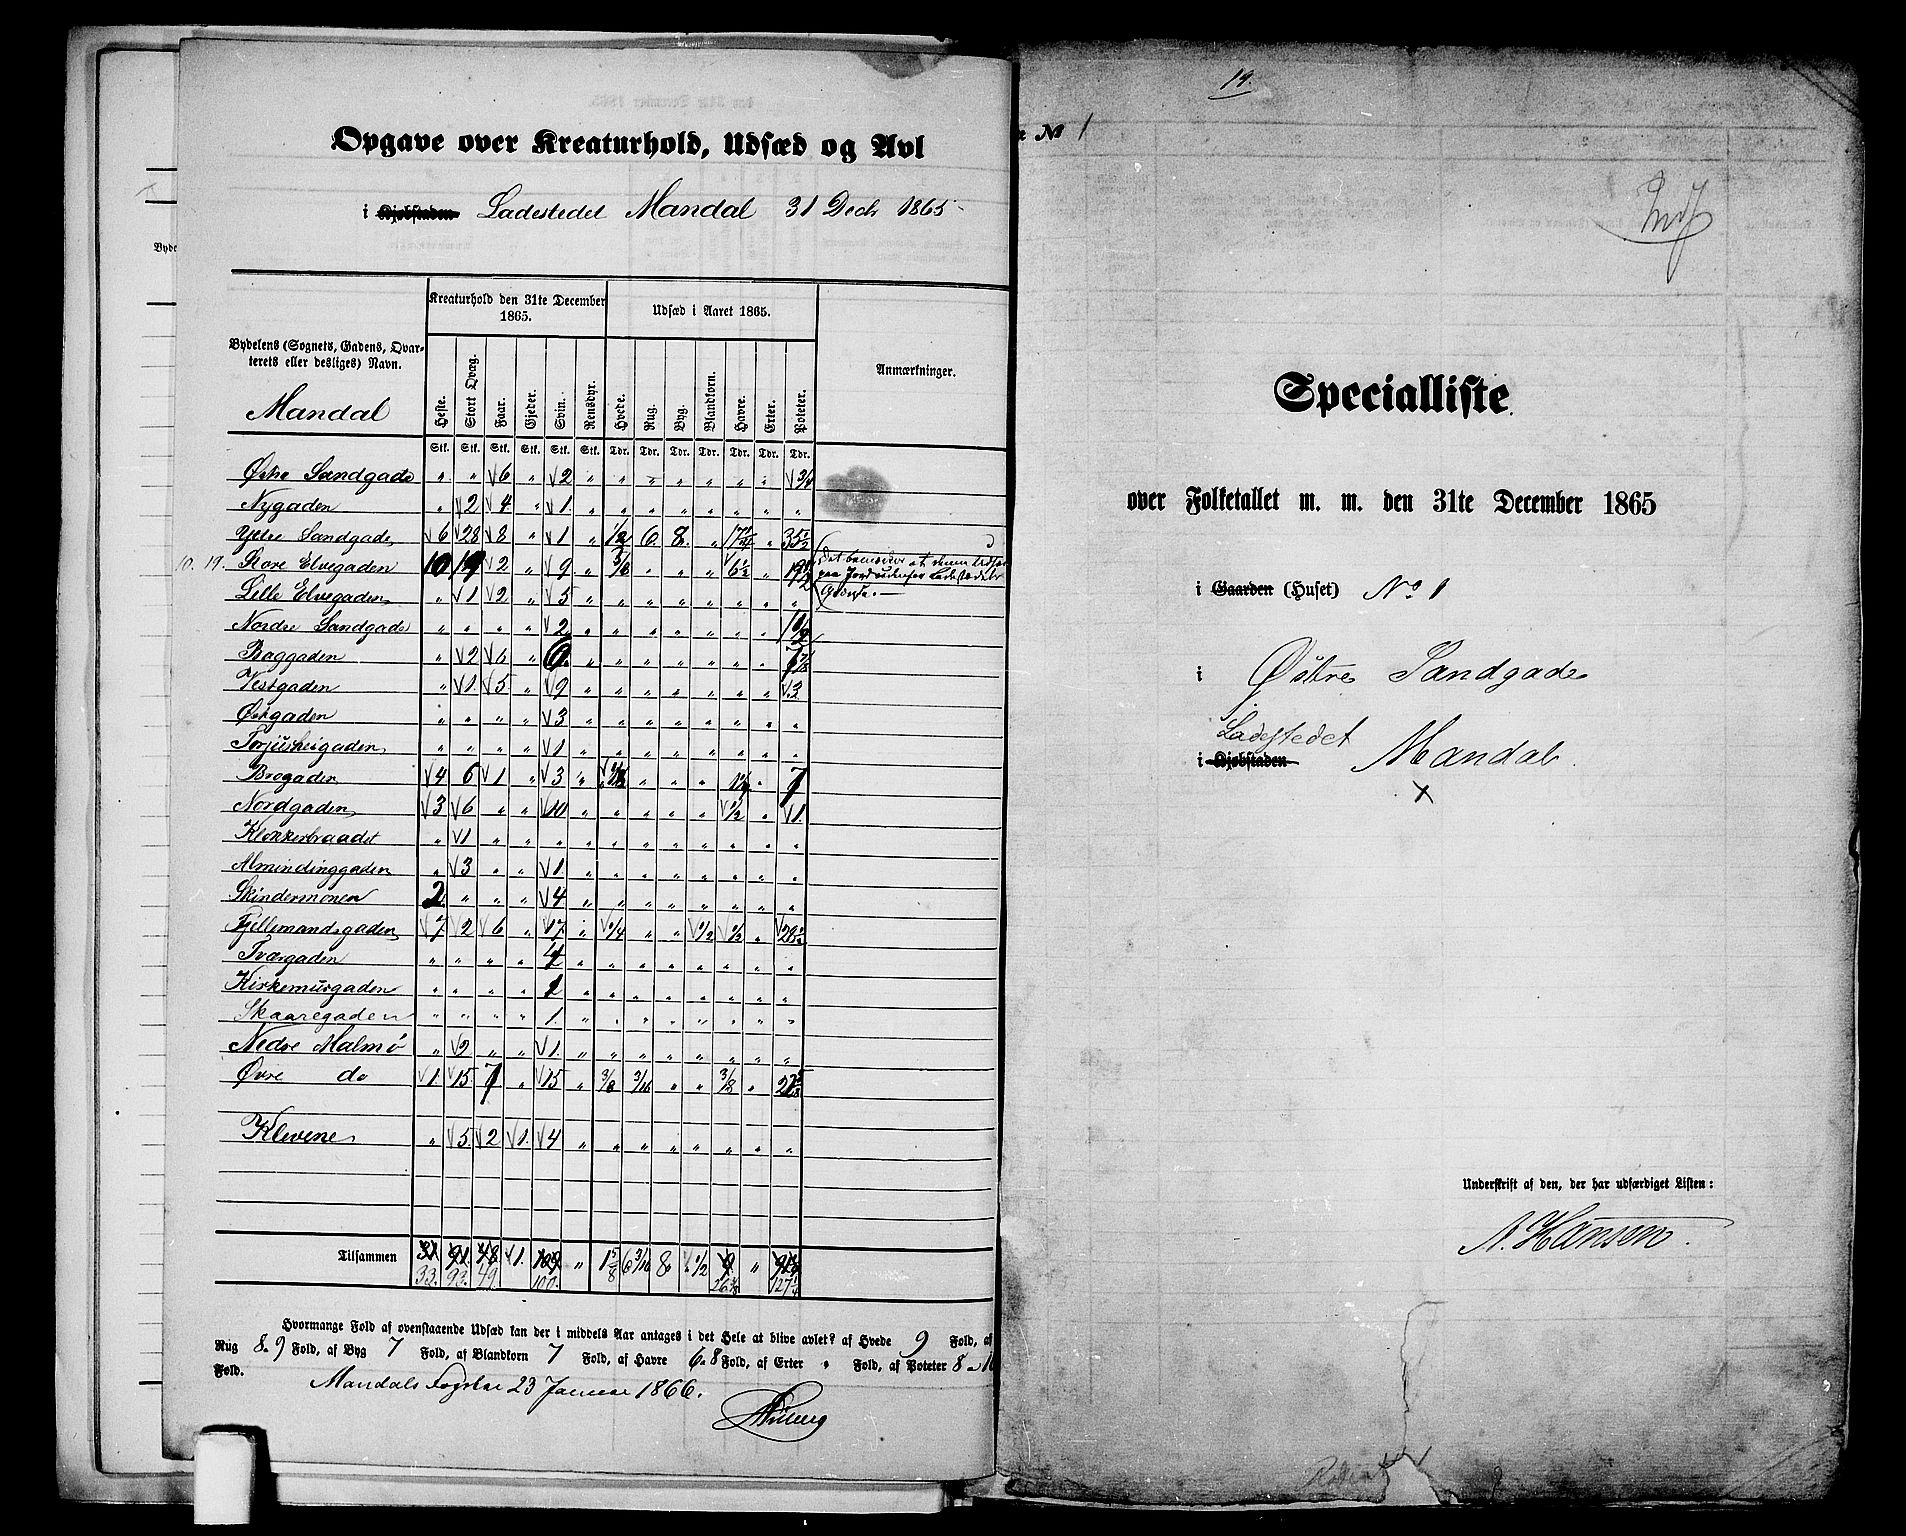 Opgave over Kreaturhold, Udsæd og Avl
i Kjøbstaden Ladestedet Mandal 31 Decbr 1865
Bydelens (Sognets, Gadens, Qvarterets eller desliges) Navn.
Mandal
Kreaturhold den 31te December 1865.
Udsæd i Aaret 1865.
Anmærkninger.
Heste. Stort Qvæg. Faar. Gjeder. Svin. Rensdyr. Hvede. Rug. Byg. Blandkorn. Havre. Erter. Poteter.
Stk. Stk. Stk. Stk. Stk. Stk. Tdr. Tdr. Tdr. Tdr. Tdr. Tdr. Tdr.
Østre Sandgade " " 6 " 2 " " " " " " " 3/4
Nygaden " 2 4 " 1 " " " " " " " "
Ydre Sandgade 6 28 8 " 1 " 1/2 6 8 " 17 1/4 " 35 1/2
10. 19. Store Elvegaden 10 19 2 " 9 " 3/8 " " " 6 1/2 " 19 1/2
Det bemærkes at denne Udsæd paa Jord udenfor Ladestedets Grændse.
Lille Elvegaden " 1 2 " 5 " " " " " " " "
Nordre Sandgade " " " " 2 " " " " " " " 1 0/2
Baggaden " 2 6 " 9 " " " " " " "
Vestgaden " 1 5 " 9 " " " " " " " 3
Østgaden " " " " 3 " " " " " " " "
Torjusheigaden " " " " 1 " " " " " " " "
Brogaden 4 6 1 " 3 " " " " " 7
Nordgaden 3 6 " " 10 " " " " " 1/2 " 1
Klokkerbraadet " 1 " " " " " " " " " " "
Almindinggaden " 3 " " 1 " " " " " " " "
Skindermonen 2 " " " 4 " " " " " " " "
Fjellemandsgaden 7 2 6 " 17 " 1/4 " " 1/2 1/2 " 28 1/2
Tværgaden " " " " 4 " " " " " " " "
Kirkemursgaden " " " " 1 " " " " " " " "
Skaaregaden " " " " 1 " " " " " " " "
Nedre Malmø " 2 " " 1 " " " " " " " "
Øvre do 1 15 7 " 15 " 3/8 3/16 " " 3/8 "
Klevene " 5 2 1 4 " " " " " " " "
Tilsammen 31 91 48 1 109 " 1 5/8 6 3/16 8 1/2 9 "
33. 93. 49. 100. 26 5/8 127 1/4
Hvormange Fold af ovenstaaende Udsæd kan der i middels Aar antages i det Hele at blive avlet? af Hvede 9 Fold, af
Rug 8 a 9 Fold, af Byg 7 Fold, af Blandkorn 7 Fold, af Havre 6 a 8 Fold, af Erter " Fold, af Poteter 8 a 10
Fold.
Mandals Fogderi 23 Januar 1866.
19.
№ 1
Specialliste
over Folketallet m. m. den 31te December 1865
i Gaarden (Huset) No 1
i Østre Sandgade
Ladestedet
i Kjøbstaden Mandal.
Underskrift af den, der har udfærdiget Listen:
A. Hansen.